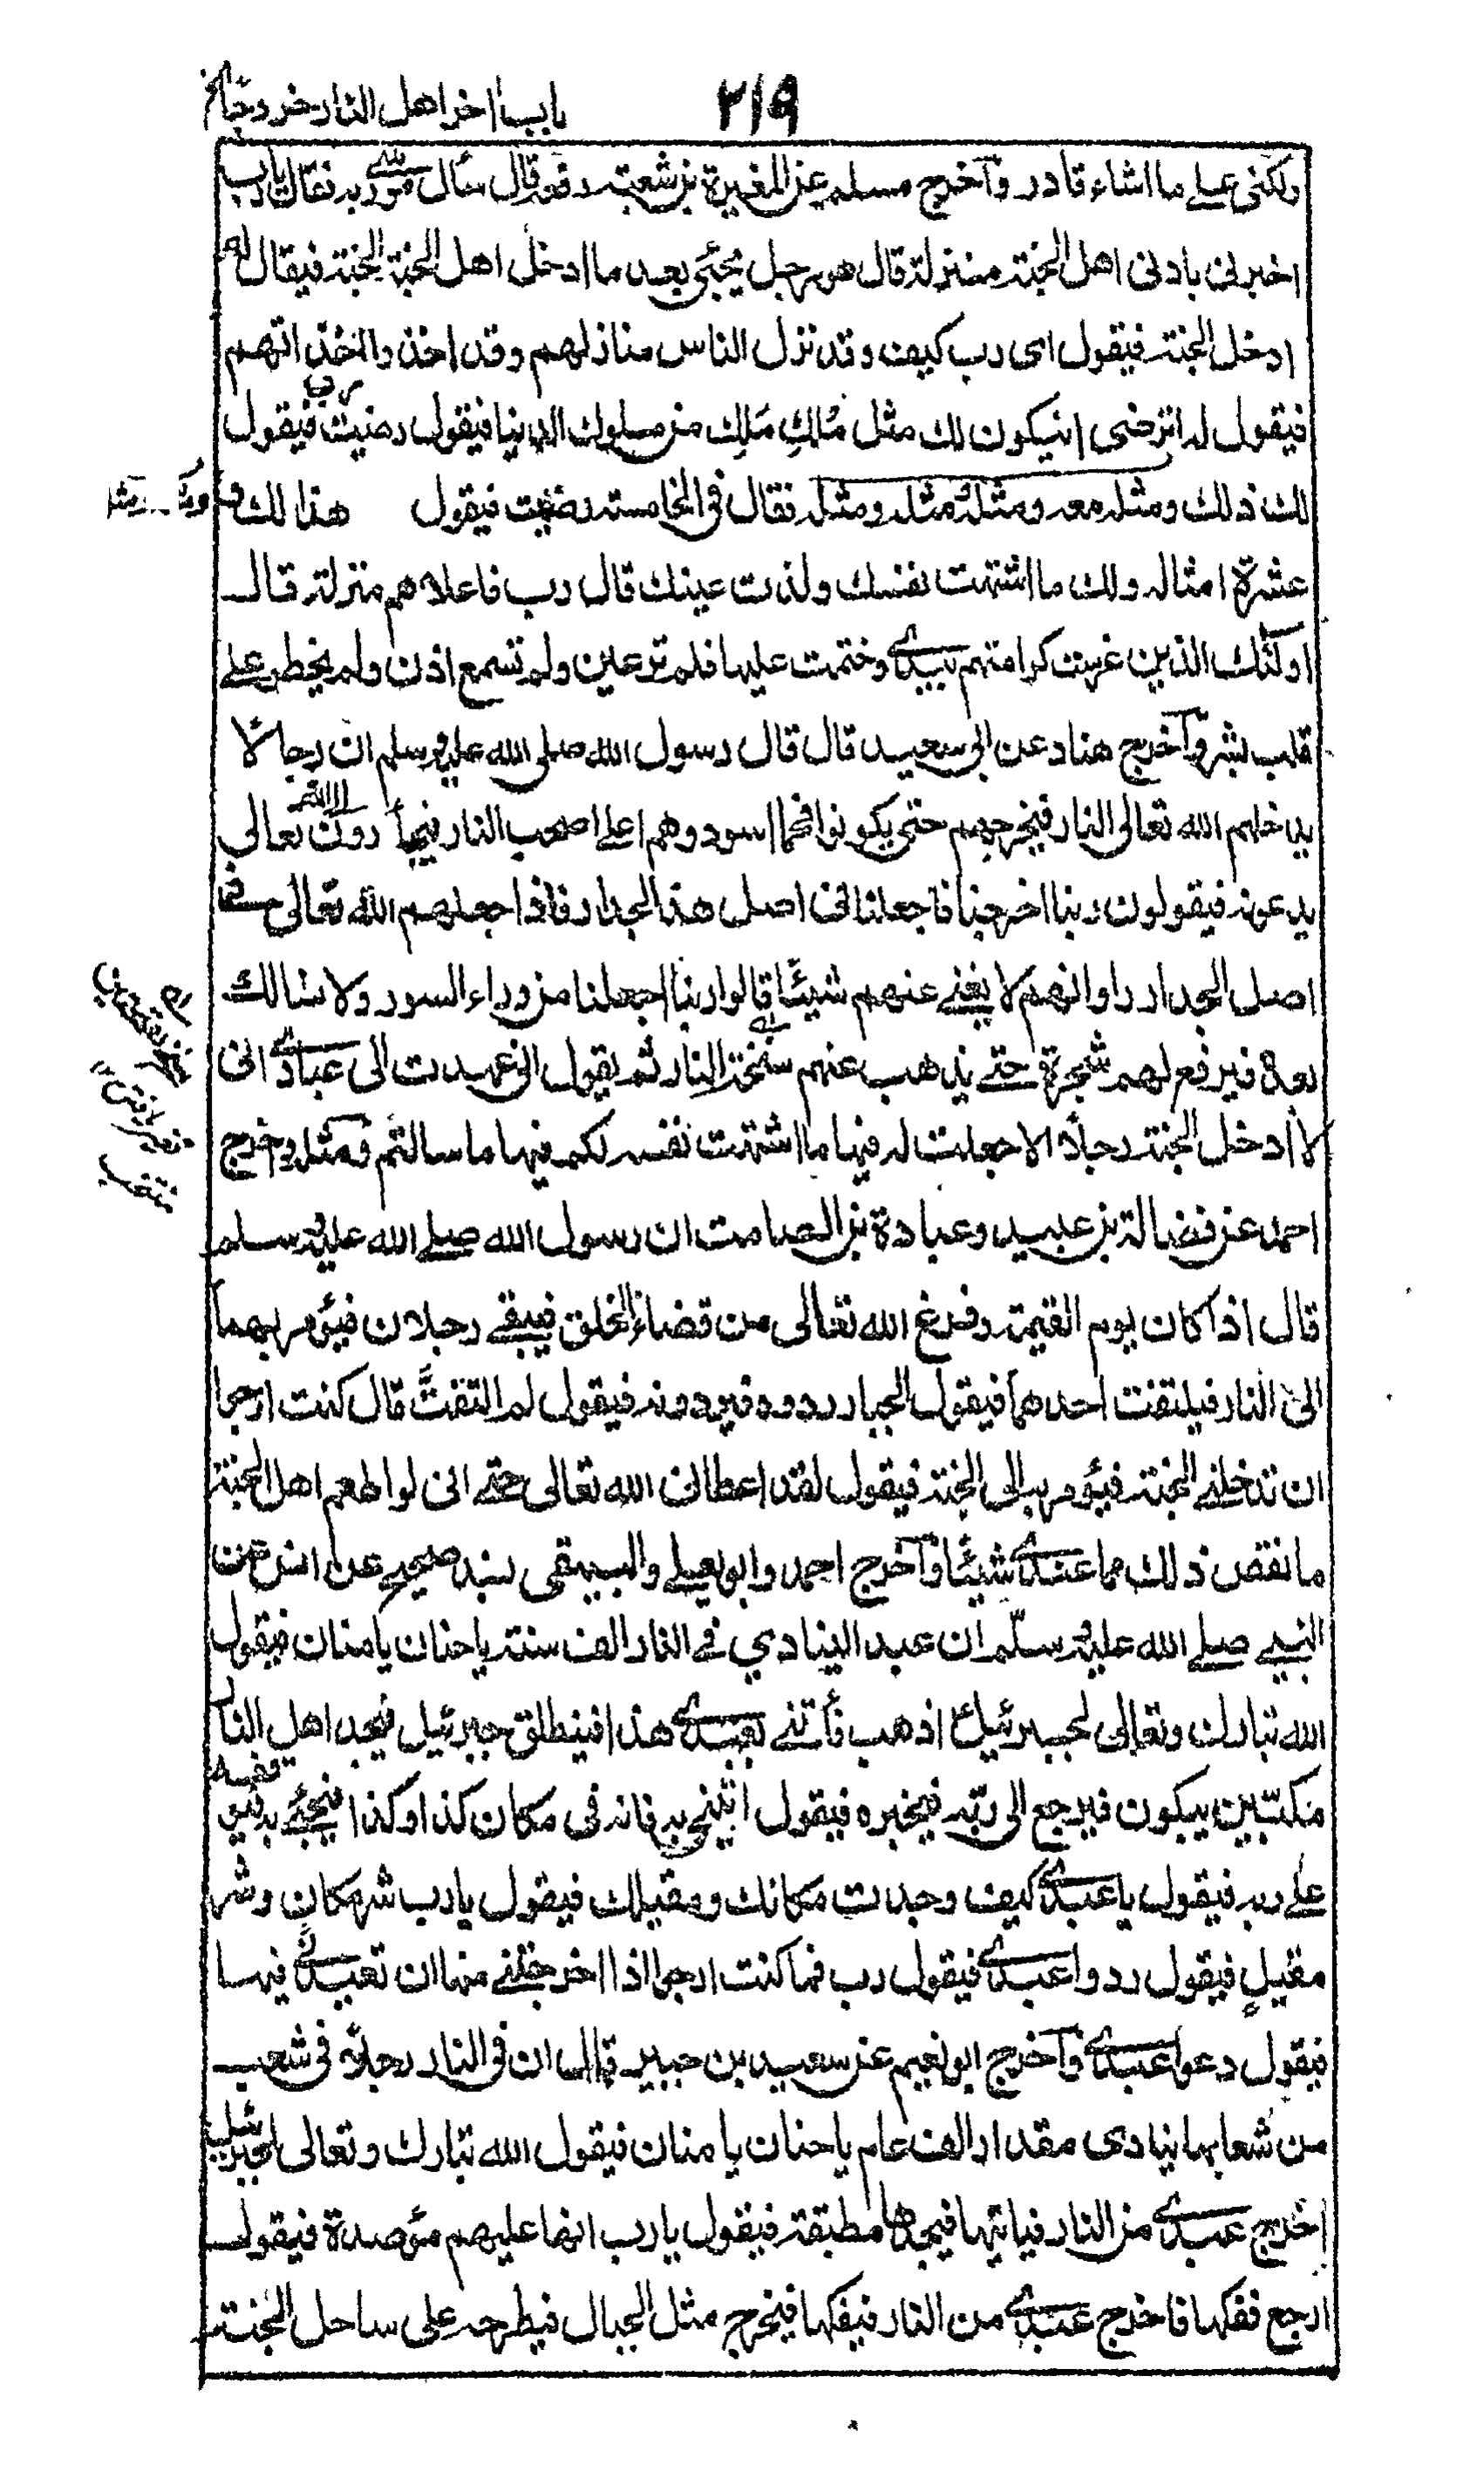 ٢١٩
باب اخر اهل النار خروجا الخ
ولكنى على ما اشاء قادر وآخرج مسلم عن المغيرة بن شعبة رفعه قال سأل موسى ربه فقال يارب
اخبرنى بادنى اهل الجنة منزلة قال هو رجل يجيئ بعد ما ادخل اهل الجنة الجنة فيقال له
ادخل الجنة فيقول اى رب كيف وقد نزل الناس منازلهم وقد اخذوا اخذاتهم
فيقول له اترضى ان يكون لك مثل مُلكِ مَلِك من ملوك الدنيا فيقول رضيت رب فيقول
لك ذلك ومثله معه ومثله ومثله ومثله فقال فى الخامسة رضيت فيقول هذا لك و
عشرة امثاله ولك ما اشتهت نفسك ولذت عينك قال رب فاعلاهم منزلة قال
اولئك الذين غرست كرامتهم بيدى وختمت عليها فلم تر عين ولم تسمع اذن ولم يخطر على
قلب بشر وآخرج هناد عن ابى سعيد قال قال رسول الله صلى الله عليه وسلم ان رجالا
يدخلهم الله تعالى النار فيخرجهم حتى يكونوا فحما اسود وهم اعلى اصحب النار فيجأرون الى الله تعالى
يدعونه فيقولون ربنا اخرجنا فاجعلنا فى اصل هذا الجدار فاذا جعلهم الله تعالى فى
اصل الجدار راوا انهم لا يغنے عنهم شيئا قالوا ربنا اجعلنا من وراء السور ولا نسالك
بعده فيرفع لهم شجرة حتے يذهب عنهم سخنة النار ثم يقول انى عهدت الى عبادى انى
لا ادخل الجنة رجلا الا جعلت له فيها ما اشتهت نفسه لكم فيها ما سالتم ومثله وآخرج
احمد عن فضالة بن عبيد وعبادة بن الصامت ان رسول الله صلے الله عليه وسلم
قال اذا كان يوم القيمة وفرغ الله تعالى من قضاء الخلق فيبقے رجلان فيؤمر بهما
الى النار فيلتفت احدهما فيقول الجبار ردوه فيردونه فيقول لم التفتَّ قال كنت ارجوا
ان تدخلنے الجنة فيؤمر به الى الجنة فيقول لقد اعطانى الله تعالى حتے انى لو اطعم اهل الجنة
ما نقص ذلك مما عندى شيئا وآخرج احمد وابو يعلے والبيهقى بسند صحيح عن انس عن
النبے صلے الله عليه وسلّم ان عبدا لينادي فے النار الف سنة يا حنان يا منان فيقول
الله تبارك وتعالى لجبرئيل اذهب فأتنے بعبدى هذا فينطلق جبرئيل فيجد اهل النار
مكبّين يبكون فيرجع الى ربّه فيخبره فيقول ائتنى به فانه فى مكان كذا وكذا فيجئے به فيوقفه
علے ربه فيقول يا عبدى كيف وجدت مكانك ومقيلك فيقول يارب شر مكان وشر
مقيلٍ فيقول ردوا عبدى فيقول رب فما كنت ارجو اذا اخرجتنے منها ان تعيدنى فيها
فيقول دعوا عبدى وآخرج ابو نعيم عن سعيد بن جبير قال ان فى النار رجلا فى شعب
من شعابها ينادى مقدار الف عام يا حنان يا منان فيقول الله تبارك وتعالى لجبرئيل
اخرج عبدى من النار فياتيها فيجدها مطبقة فيقول يارب انها عليهم مؤصدة فيقول
ارجع ففكها فاخرج عبدى من النار فيفكها فيخرج مثل الجبال فيطرحه على ساحل الجنة